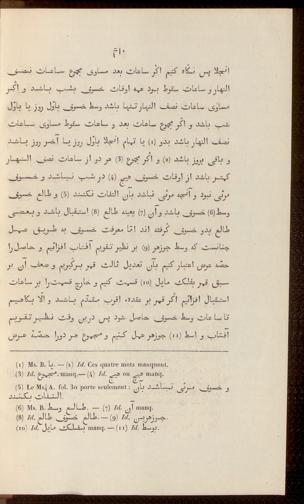 انجلا پس نگاه کنیم اگر ساعات بعد مساوی مجموع ساعات نصف
النهار و ساعات سقوط بود همه اوقات خسوف بشب باشد و اگر
مساوی ساعات نصف النهار تنها باشد وسط خسوف باول روز یا باول
شب باشد و اگر مجموع ساعات بعد و ساعات سقوط مساوی ساعات
نصف النهار باشد بدو (1) یا تمام انجلا باول روز یا آخر روز باشد
و باقی بروز باشد (2) و اگر مجموع (3) هر دو از ساعات نصف النهار
کمتر باشد از اوقات خسوف هیچ (4) در شب نباشد و خسوف
مرئی نبود و آنچه مرئی نباشد بآن التفات نکنند (5) و طالع خسوف
وسط (6) خسوف باشد و آن (7) بعینه طالع (8) استقبال باشد و بعضی
طالع بدو خسوف گرفته اند اما معرفت خسوف به طریق عمل
چنانست که وسط جوزهر (9) بر نظیر تقویم آفتاب افزائیم و حاصل را
حصه عرض اعتبار کنیم بآن تعدیل ثالث قمر برگیریم و ضعف آن بر
سبق قمر بفلک مایل (10) قسمت کنیم و خارج قسمت را بر ساعات
استقبال افزائیم اگر قمر بر عقده اقرب متقدم باشد و الا بکاهیم
تا ساعات وسط خسوف حاصل شود پس درین وقت نظیر تقویم
آفتاب و اسط (11) جوزهر عمل کنیم و مجموع هر دو را حصه عرض
(1) Ms. B. یا. — (2) Id. Ces quatre mots manquent.
(3) Id. مجموع manq. — (4) Id. هیچ ou هیچ manq.
(5) Le Ms; A. fol. 30 porte seulement : و خسوف مرئی نباشد بآن
التفات نکنند
(6) Ms. B. طالع وسط. — (7) Id. آن manq.
(8) Id. طالع خسوف طالع. — (9) Id. جوزهرین.
(10) Id. بفلک مایل manq. — (11) Id. وسط.